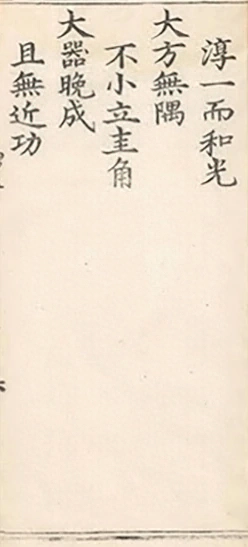 淳一而和光
大方無隅
不小立圭角
大器晚成
且無近功